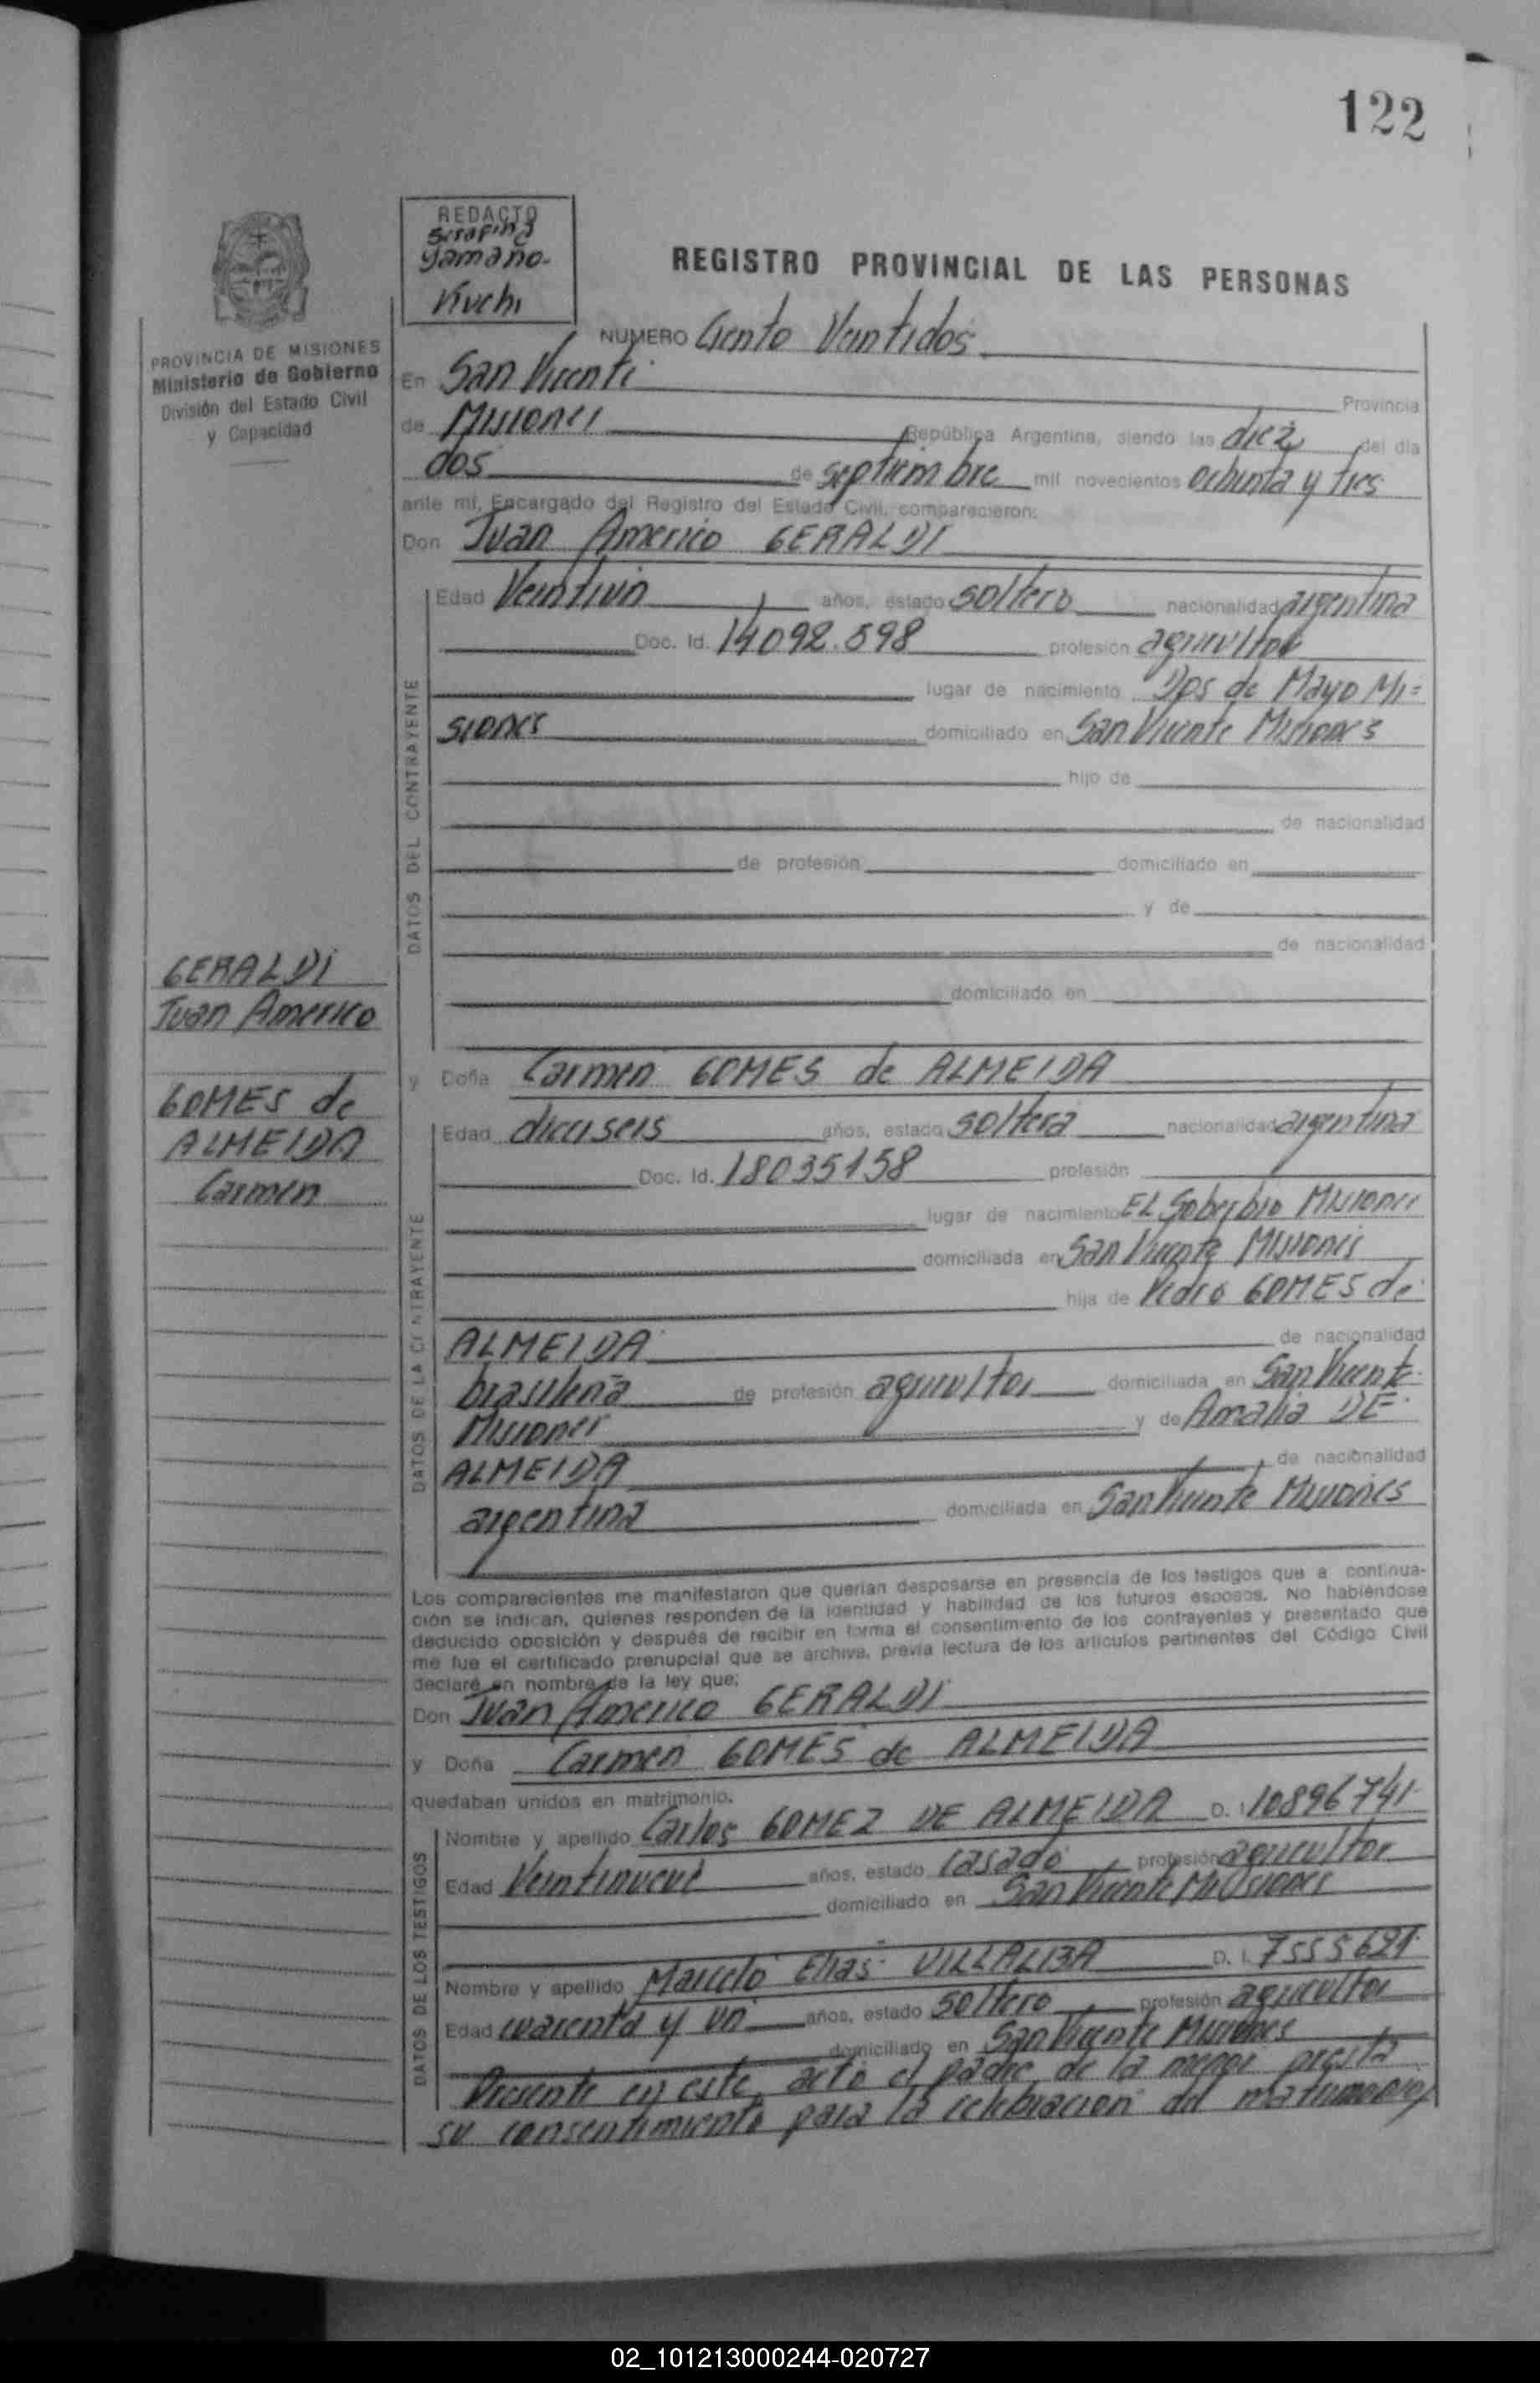 122
REDACTO
Serafina
Yamaño-
Kuchi
REGISTRO PROVINCIAL DE LAS PERSONAS
PROVINCIA DE MISIONES
Ministerio de Gobierno
División del Estado Civil
y Capacidad
NUMERO Ciento Veintidos
En San Vicente Provincia
de Misiones República Argentina, siendo las diez del dia
dos de septiembre mil novecientos ochenta y tres
ante mi, Encargado del Registro del Estado Civil, comparecieron:
Don Juan Americo GERALDI
DATOS DEL CONTRAYENTE
Edad Veintiun años, estado soltero nacionalidad argentina
Doc. Id. 14092.598 profesión agricultor
lugar de nacimiento Dos de Mayo Mi=
siones domiciliado en San Vicente Misiones
hijo de
de nacionalidad
de profesión domiciliado en
y de
de nacionalidad
domiciliado en
GERALDI
Juan Americo
GOMES de
ALMEIDA
Carmen
y Doña Carmen GOMES de ALMEIDA
DATOS DE LA CONTRAYENTE
Edad dieciseis años, estado soltera nacionalidad argentina
Doc. Id. 18035158 profesión
lugar de nacimiento EL Soberbio Misiones
domiciliada en San Vicente Misiones
hija de Pedro GOMES de
ALMEIDA de nacionalidad
brasileña de profesión agricultor domiciliada en San Vicente
Misiones y de Amalia DE
ALMEIDA de nacionalidad
argentina domiciliada en San Vicente Misiones
Los comparecientes me manifestaron que querían desposarse en presencia de los testigos que a continua-
ción se indican, quienes responden de la identidad y habilidad de los futuros esposos. No habiéndose
deducido oposición y después de recibir en forma el consentimiento de los contrayentes y presentado que
me fue el certificado prenupcial que se archiva, previa lectura de los artículos pertinentes del Código Civil
declaré en nombre de la ley que:
Don Juan Americo GERALDI
y Doña Carmen GOMES de ALMEIDA
quedaban unidos en matrimonio.
DATOS DE LOS TESTIGOS
Nombre y apellido Carlos GOMEZ DE ALMEIDA D. I. 10896741
Edad Veintinueve años, estado casado profesión agricultor
domiciliado en San Vicente Misiones
Nombre y apellido Marcelo Elias VILLALBA D. I. 7555621
Edad cuarenta y un años, estado soltero profesión agricultor
domiciliado en San Vicente Misiones
Presente en este acto el padre de la menor presta
su consentimiento para la celebracion del matrimonio/
02_101213000244-020727